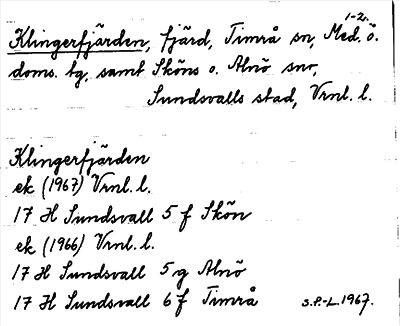 1-2.
Klingerfjärden, fjärd, Timrå sn, Med. ö.
doms. tg, samt Sköns o. Alnö snr,
Sundsvalls stad, Vrnl. l.
Klingerfjärden
ek (1967) Vrnl. l.
17 H Sundsvall 5 f Skön
ek (1966) Vrnl. l.
17 H Sundsvall 5 g Alnö
17 H Sundsvall 6 f Timrå S.P.-L 1967.